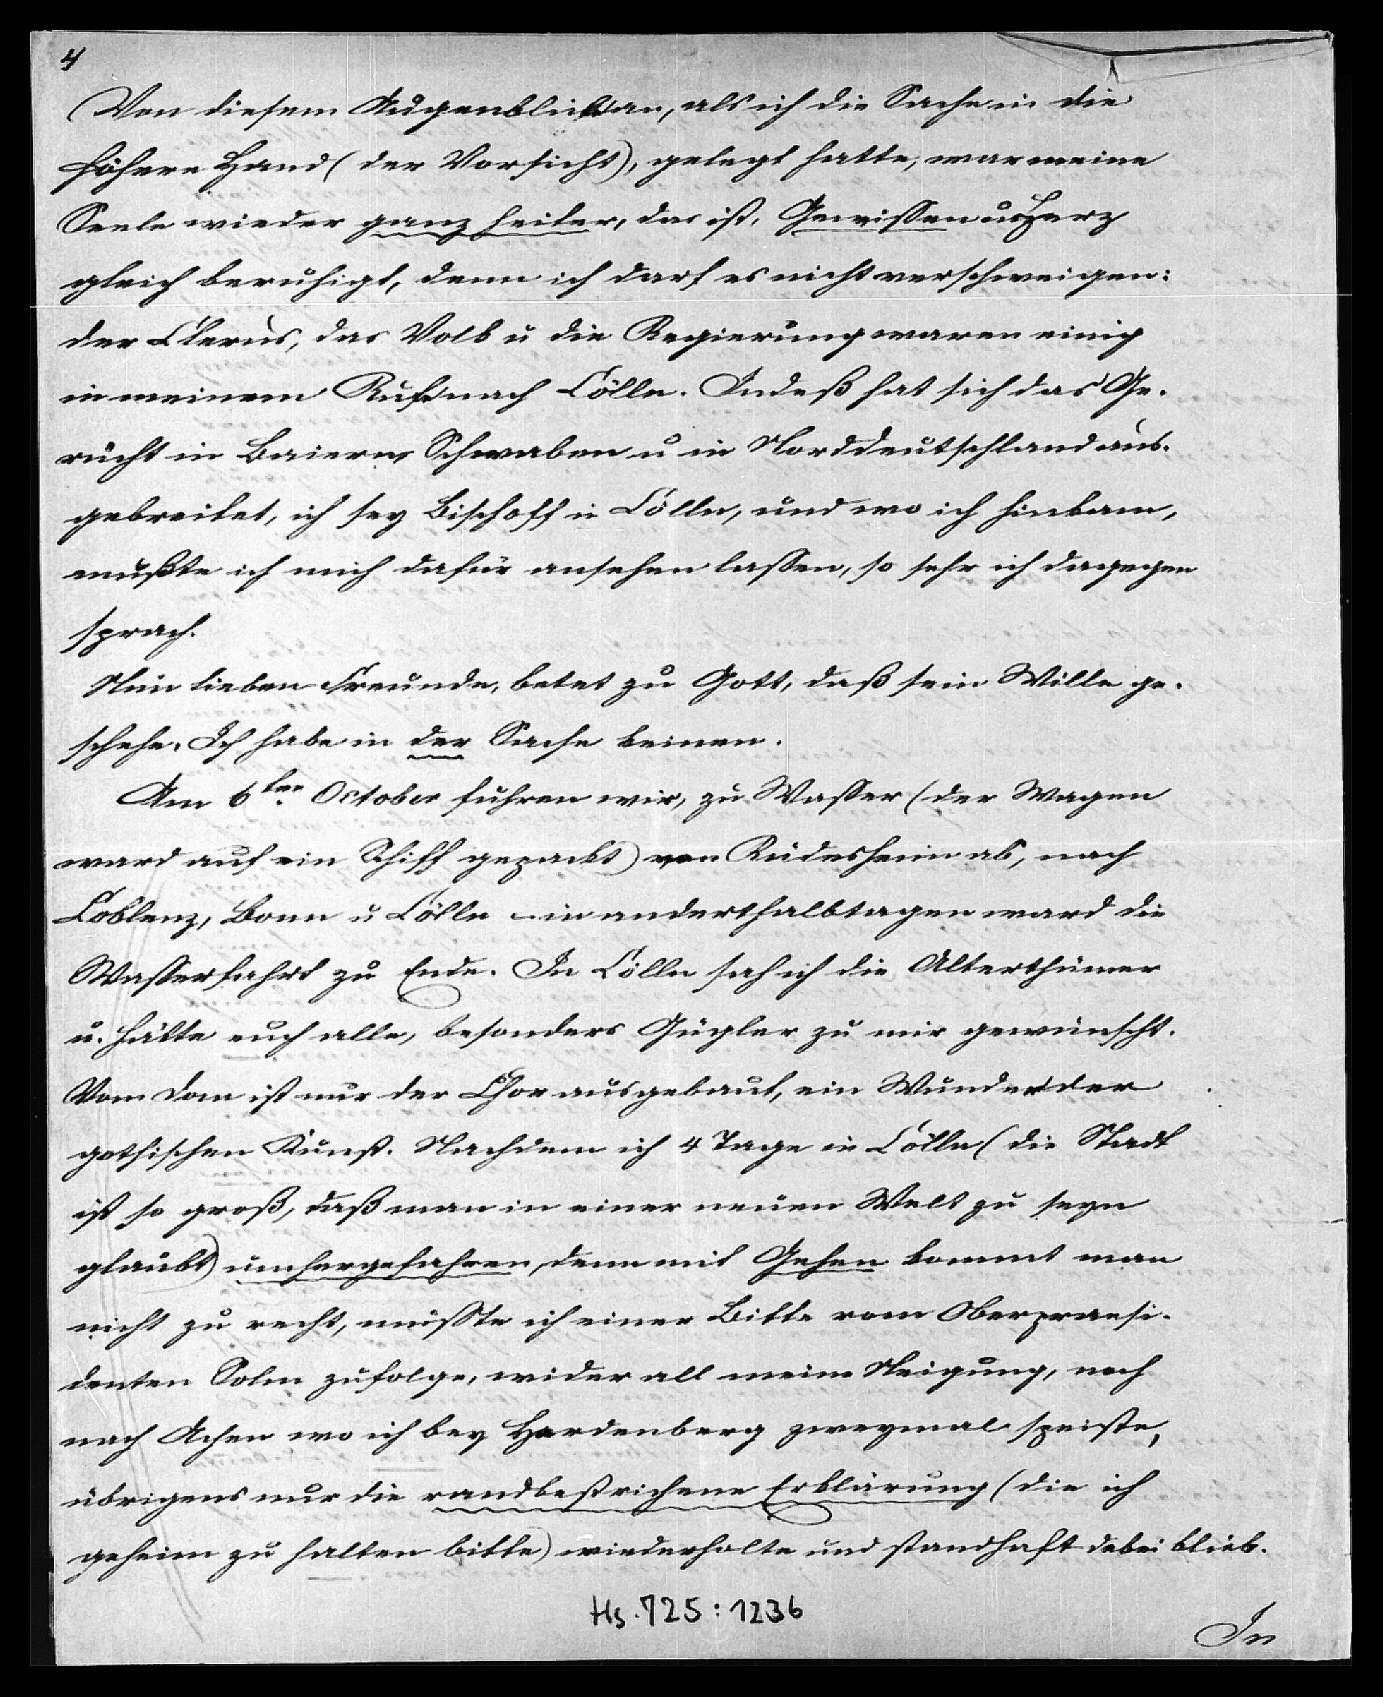 4
Von diesem Augenblick an, als ich die Sache in die
höhere Hand (der Vorsicht), gelegt hatte, war meine
Seele wieder ganz heiter, das ist, Gewissen u Herz
gleich beruhigt, denn ich darf es nicht verschweigen:
der Clerus, das Volk u die Regierung waren einig
in meinem Ruf nach Cölln. Indeß hat sich das Ge-
rücht in Baiern, Schwaben u in Norddeutschland aus-
gebreitet, ich sey Bischoff in Cölln, und wo ich hinkam,
mußte ich mich dafür ansehen lassen, so sehr ich dagegen
sprach.
Nun lieben Freunde, betet zu Gott, daß sein Wille ge-
schehe. Ich habe in der Sache keinen.
Am 6ten October fuhren wir, zu Wasser (der Wagen
ward auf ein Schiff gepackt) von Rüdesheim ab, nach
Coblenz, Bonn u Cölln – in anderthalbtagen ward die
Wasserfahrt zu Ende. In Cölln sah ich die Alterthümer
u. hätte euch alle, besonders Gügler zu mir gewünscht.
Vom Dom ist nur der Chor ausgebaut, ein Wunder der
gothischen Kunst. Nachdem ich 4 Tage in Cölln (die Stadt
ist so groß, daß man in einer neuen Welt zu seyn
glaubt) umhergefahren, denn mit Gehen kommt man
nicht zu recht, mußte ich einer Bitte vom Oberpraesi-
denten Solm zufolge, wider all meine Neigung, noch
nach Achen wo ich bey Hardenberg zweymal speiste,
übrigens nur die randbestrichene Erklärung (die ich
geheim zu halten bitte) wiederholte und standhaft dabei blieb.
Hs. 725: 1236
In